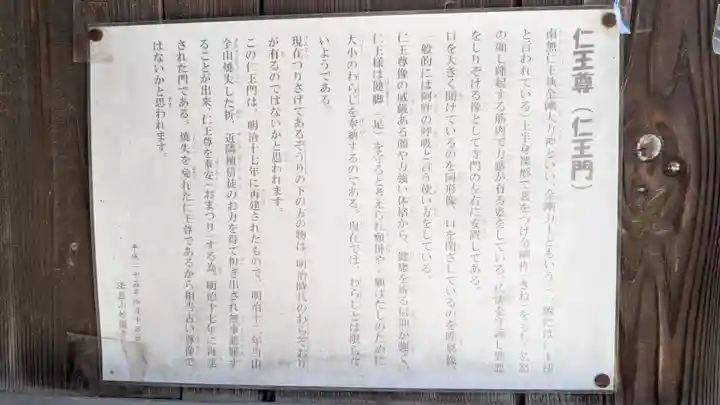 仁王尊（仁王門）
南無仁王執金剛大力神といい、金剛力士ともいう（一般には仁王様
と言われている）上半身裸形で裳をつけ金剛杵（きね）をもち忿怒
の顔し隆起する筋肉で力感が有る姿をしている。仏法を守護し邪悪
をしりぞける像として寺門の左右に安置してある。
口を大きく開けているのを阿形像、口を閉ざしているのを吽形像
一般的には阿吽の呼吸と言う使い方をしている。
仁王尊像の威厳ある顔や力強い体格から、健康を祈る信仰が強く、
仁王様は健脚（足）を守ると考えられ願掛や、願はたしのために
大小のわらじを奉納するのである。現在では、わらじとは限らな
いようである。
現在つりさげてあるぞうりの下の方の物は、明治時代のわらぞうり
が有るのではないかと思われます。
この仁王門は、明治十七年に再建されたもので、明治十二年当山
全山焼失した折、近隣檀信徒のお力を得て担ぎ出され無事避難す
ることが出来、仁王尊を奉安（おまつり）する為、明治十七年に再建
された門である。焼失を免れた仁王尊であるから相当古い尊像で
はないかと思われます。
平成二十